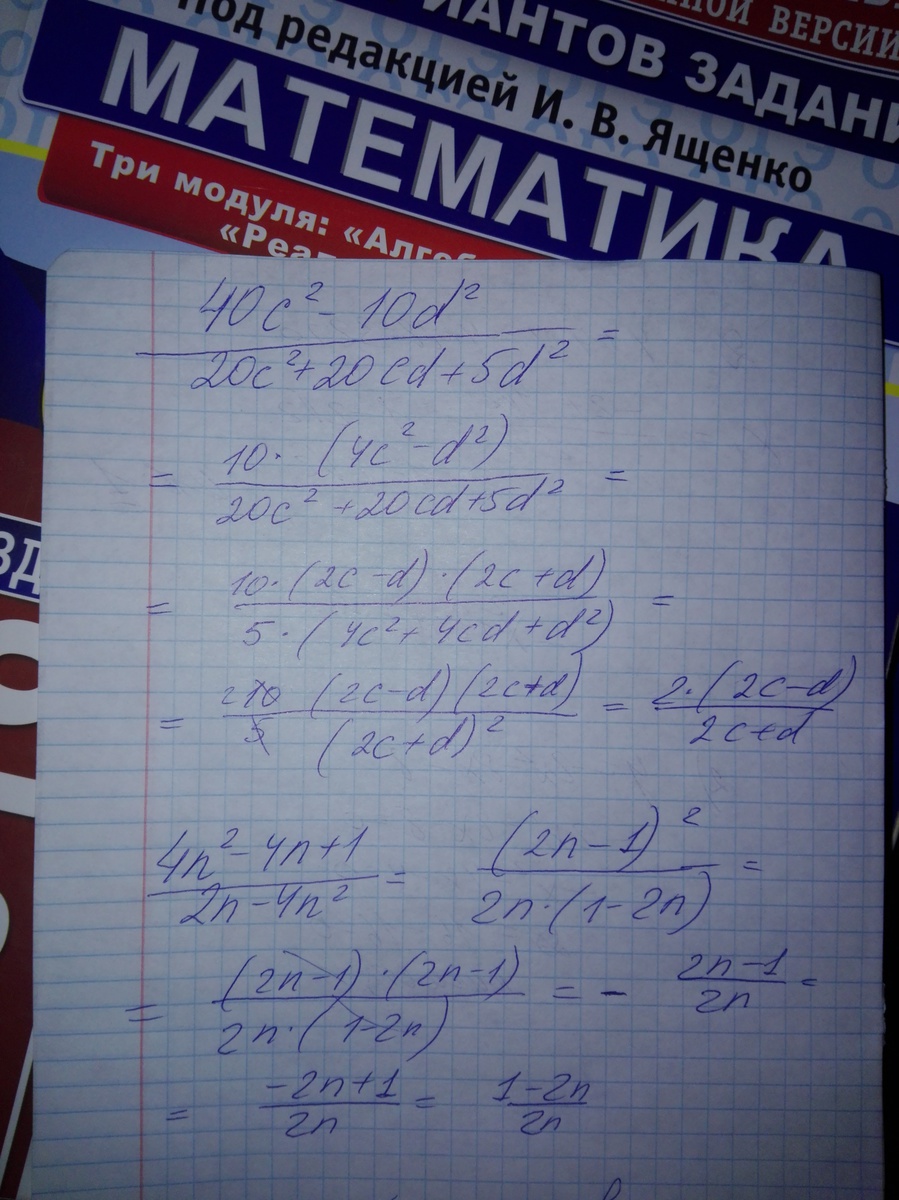 ННОЙ ВЕРСИИ
ИАНТОВ ЗАДАНИ
Под редакцией И. В. Ященко
МАТЕМАТИКА
Три модуля: «Алгеб
«Реал
40c² - 10d² / 20c² + 20cd + 5d² =
= 10 · (4c² - d²) / 20c² + 20cd + 5d² =
= 10 · (2c - d) · (2c + d) / 5 · (4c² + 4cd + d²) =
= 2 10 (2c - d) (2c + d) / 5 (2c + d)² = 2 · (2c - d) / 2c + d
4n² - 4n + 1 / 2n - 4n² = (2n - 1)² / 2n · (1 - 2n) =
= (2n - 1) · (2n - 1) / 2n · (1 - 2n) = - 2n - 1 / 2n =
= -2n + 1 / 2n = 1 - 2n / 2n